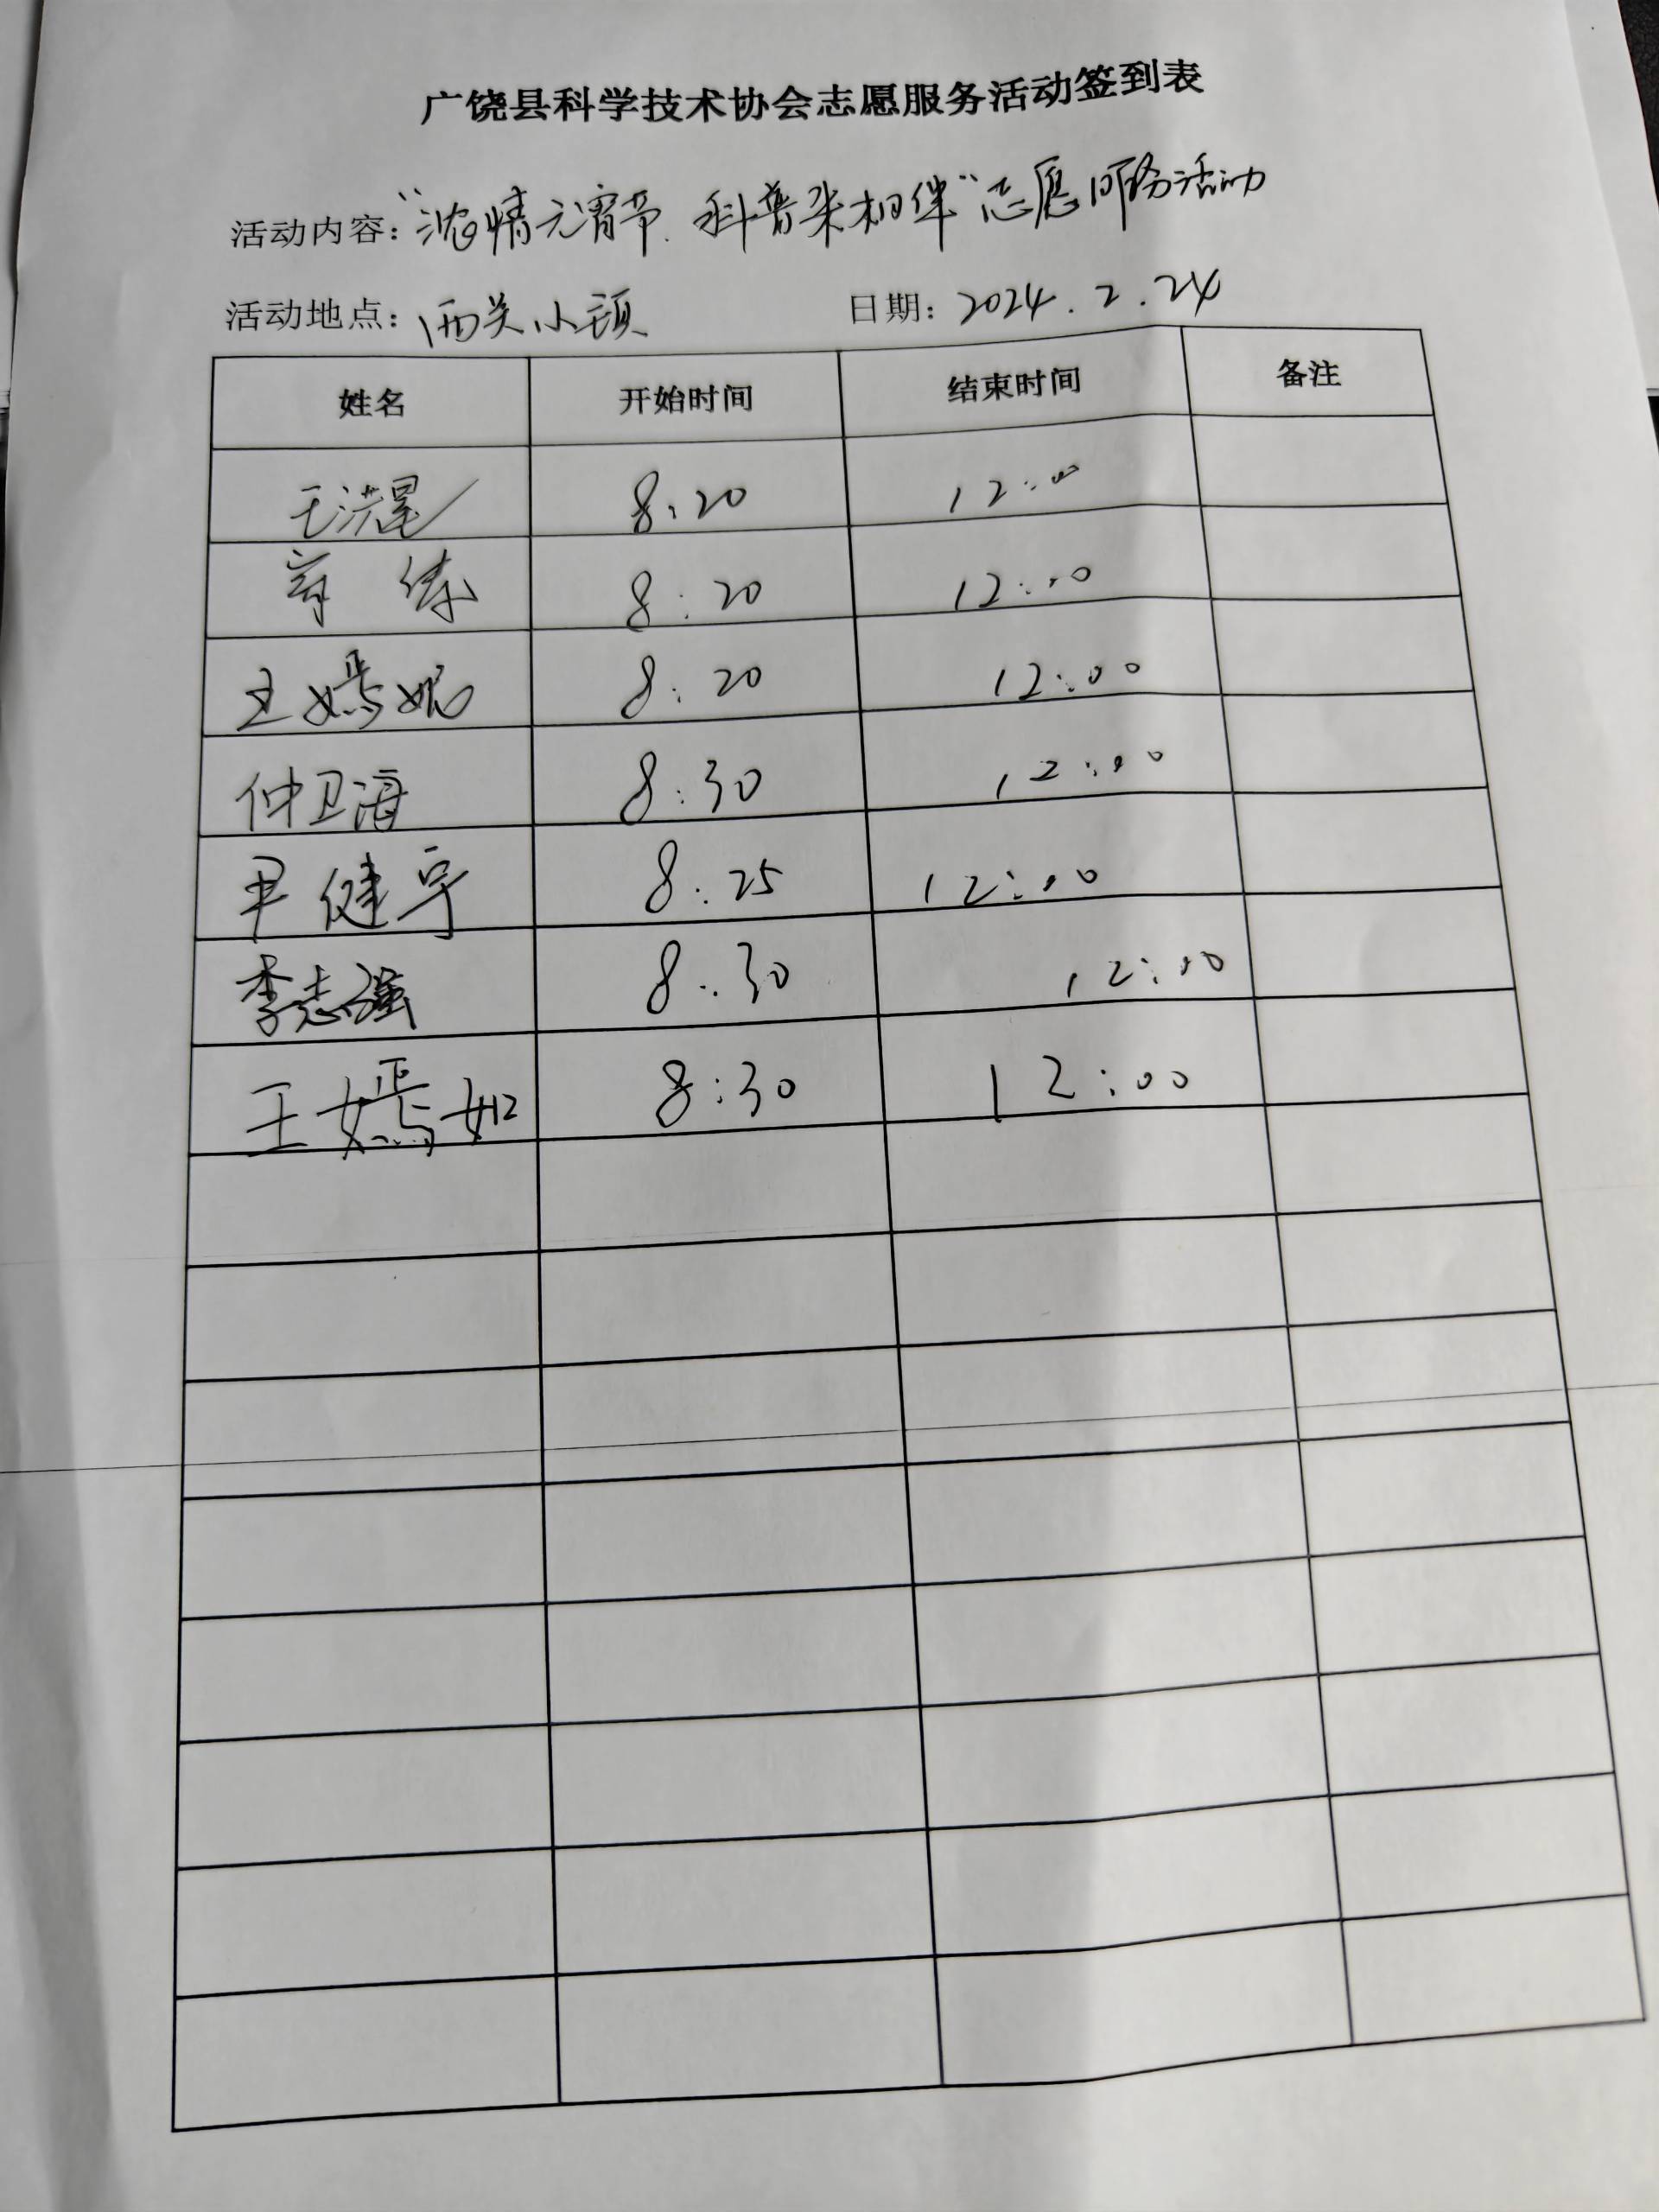 广饶县科学技术协会志愿服务活动签到表
活动内容:“浓情元宵节.科普来相伴”志愿服务活动
活动地点:西关小镇 日期:2024.2.24
姓名 开始时间 结束时间 备注
王洪星 8:20 12:00
8:20 12:00
王嫣妮 8:20 12:00
仲卫海 8:30 12:00
尹健宇 8:25 12:00
李志强 8:30 12:00
王嫣如 8:30 12:00